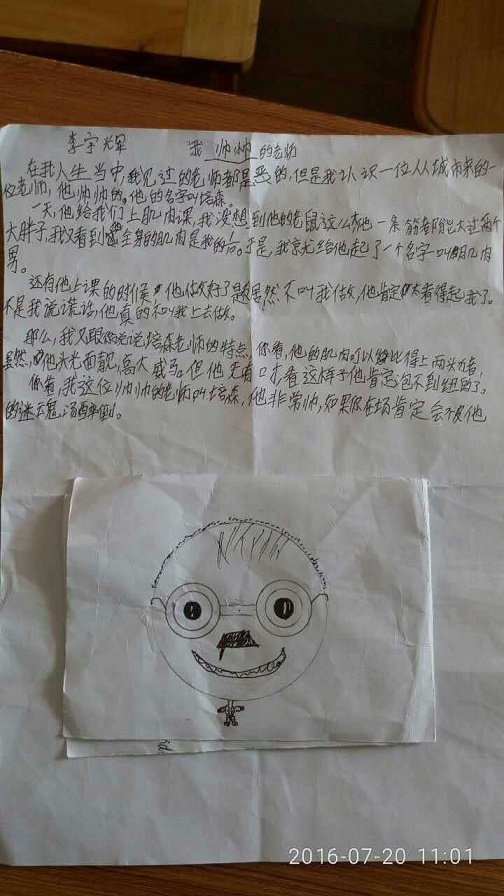 李宇辉 我帅帅的老师
在我人生当中,我见过的老师都是恶的,但是我认识一位从城市来的一
位老师,他帅帅的。他的名字叫培森。
一天,他给我们上肌肉课,我没想到他的老鼠这么大他一条筋都能大过两个
大胖子,我又看到他全身的肌肉是我的 于是,我竟然给他起了一个名字叫做肌肉
男。
还有他上课的时候,他做好了题居然不叫我做,他肯定太看得起我了。
不是我说谎话,他真的不叫我上去做。
那么,我又跟你说说培森老师的特点,你看,他的肌肉可以够比得上两头力者,
虽然,他头光面靓,高大威当。但他无有口才看这样子他肯定泡不到妞助了。
你看,我这位帅帅的老师叫培森,他非常帅,如果你在场肯定会被他
的迷魂汤醉倒。
2016-07-20 11:01